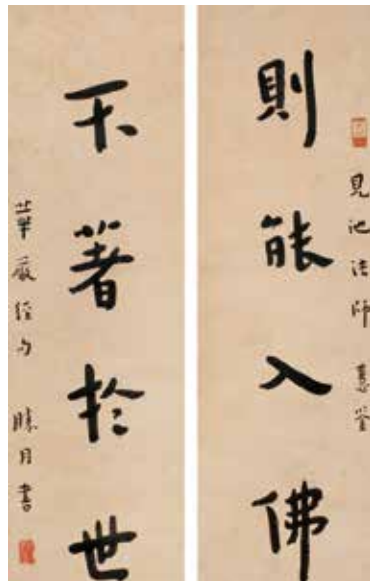 則能入佛
見池法師 慧鉴
不著於世
華嚴經句 勝月書